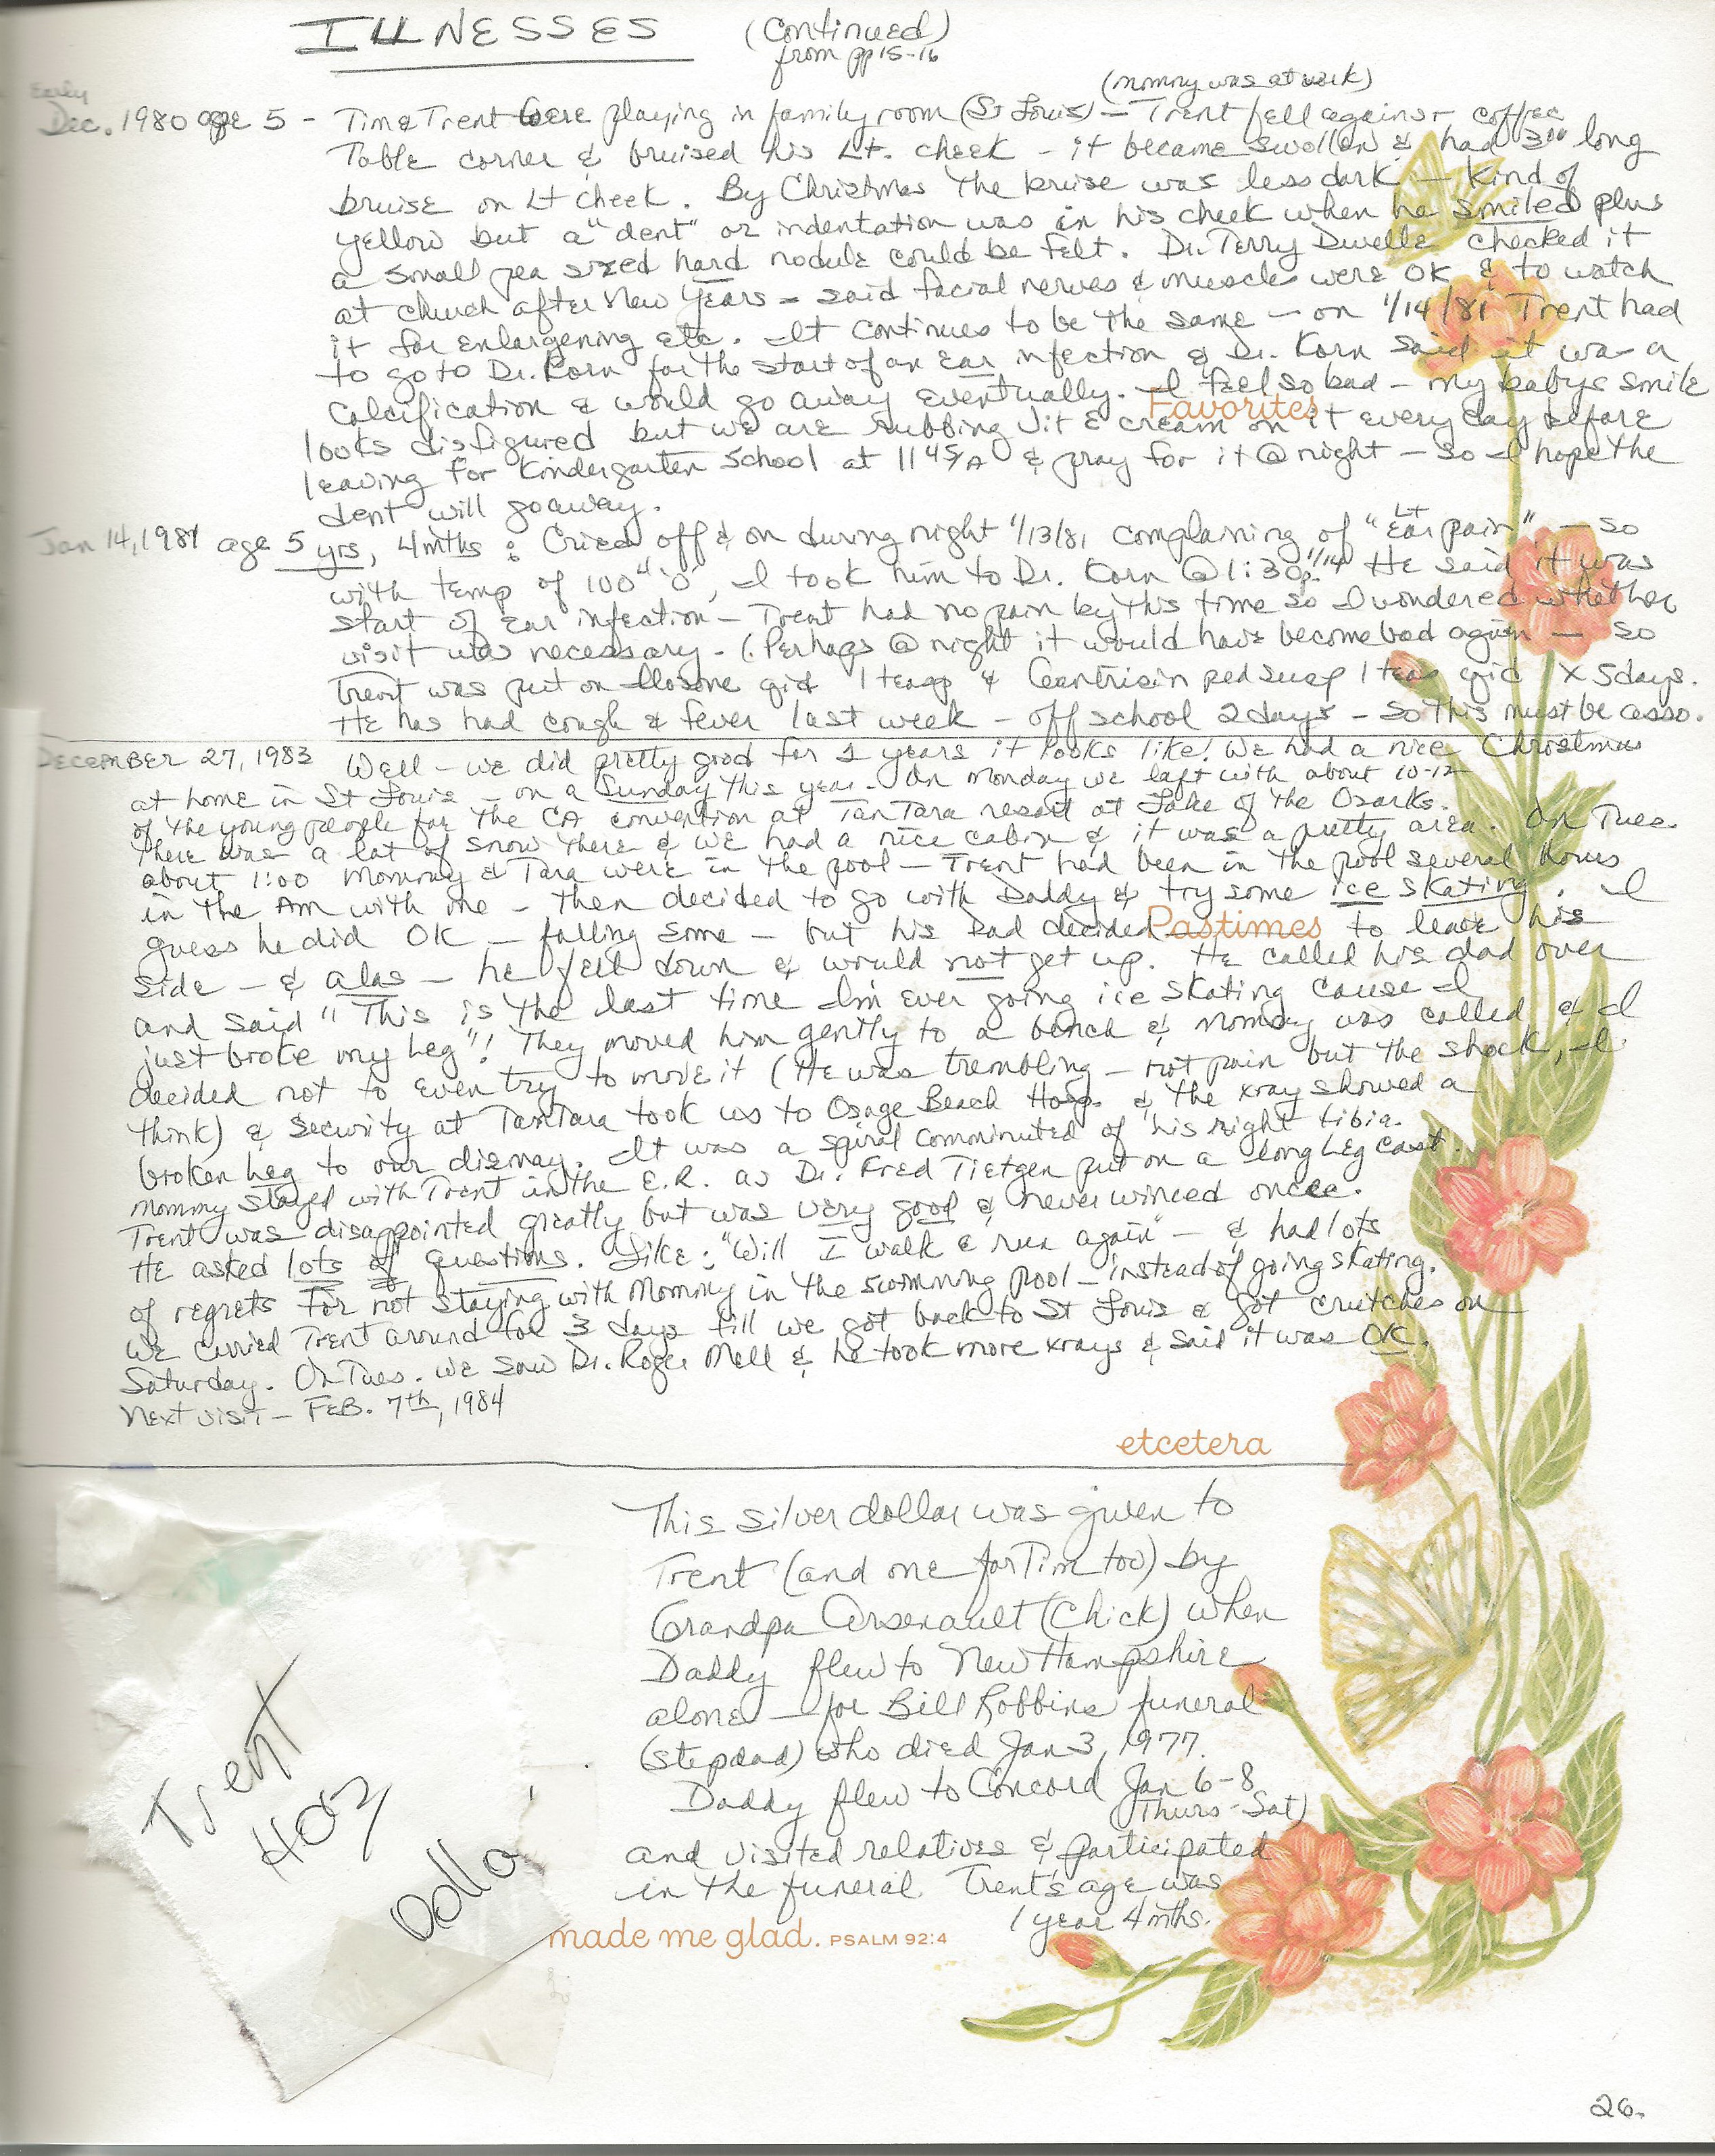 ILLNESSES (continued)
from pp 15-16
(mommy was at work)
Early
Dec. 1980 age 5 - Tim & Trent were playing in family room (St Louis) - Trent fell against coffee
Table corner & bruised his Lt. cheek - it became swollen & had 3" long
bruise on Lt cheek. By Christmas the bruise was less dark - kind of
yellow but a "dent" or indentation was in his cheek when he smiled plus
a small pea sized hard nodule could be felt. Dr. Terry Dwelle checked it
at church after New Years - said facial nerves & muscles were OK & to watch
it for enlargening etc. It continues to be the same - on 1/14/81 Trent had
to go to Dr. Korn for the start of an ear infection & Dr. Korn said it was a
calcification & would go away eventually. I feel so bad - my babys smile
Favorites
looks disfigured but we are rubbing Vit E cream on it every day before
leaving for Kindergarten School at 1145/A & pray for it @ night - so I hope the
dent will go away.
Jan 14, 1981 age 5 yrs, 4 mths : Cried off & on during night 1/13/81 complaining of "Lt Ear pain" - so
with temp of 100⁴ "o", I took him to Dr. Korn @ 1:30p 1/14 He said it was
start of ear infection - Trent had no pain by this time so I wondered whether
visit was necessary - (Perhaps @ night it would have become bad again - so
Trent was put on Ilosone qid 1 teasp & Gantrisin ped susp 1 teas qid x 5 days.
He has had cough & fever last week - off school 2 days - so this must be asso.
DECEMBER 27, 1983 Well - we did pretty good for 2 years it looks like! We had a nice Christmas
at home in St Louis - on a Sunday this year. On Monday we left with about 10-12
of the young people for the CA convention at TanTara resort at Lake of the Ozarks.
There was a lot of snow there & we had a nice cabin & it was a pretty area. On Tues.
about 1:00 Mommy & Tara were in the pool - Trent had been in the pool several hours
in the AM with me - then decided to go with Daddy & try some ice skating. I
guess he did OK - falling some - but his Dad decided to leave his
Pastimes
side - & alas - he fell down & would not get up. He called his dad over
and said "This is the last time I'm ever going ice skating cause I
just broke my leg"! They moved him gently to a bench & Mommy was called & I
decided not to even try to move it (He was trembling - not pain but the shock, I
think) & Security at TanTara took us to Osage Beach Hosp. & the xray showed a
broken leg to our dismay. It was a spiral comminuted of his right tibia.
Mommy stayed with Trent in the E.R. as Dr. Fred Tietgen put on a long leg cast.
Trent was disappointed greatly but was very good & never winced once.
He asked lots of questions. Like: "Will I walk & run again" - & had lots
of regrets for not staying with Mommy in the swimming pool - instead of going skating.
We carried Trent around for 3 days till we got back to St Louis & got crutches on
Saturday. On Tues. we saw Dr. Roger Mell & he took more xrays & said it was OK.
Next visit - FEB. 7th, 1984
etcetera
This silver dollar was given to
Trent (and one for Tim too) by
Grandpa Arsenault (Chick) when
Daddy flew to New Hampshire
alone - for Bill Robbins funeral
(stepdad) who died Jan 3, 1977.
Daddy flew to Concord Jan 6-8
(Thurs-Sat)
and visited relatives & participated
in the funeral. Trent's age was
1 year 4 mths.
Trent
Dolla
made me glad. PSALM 92:4
26.